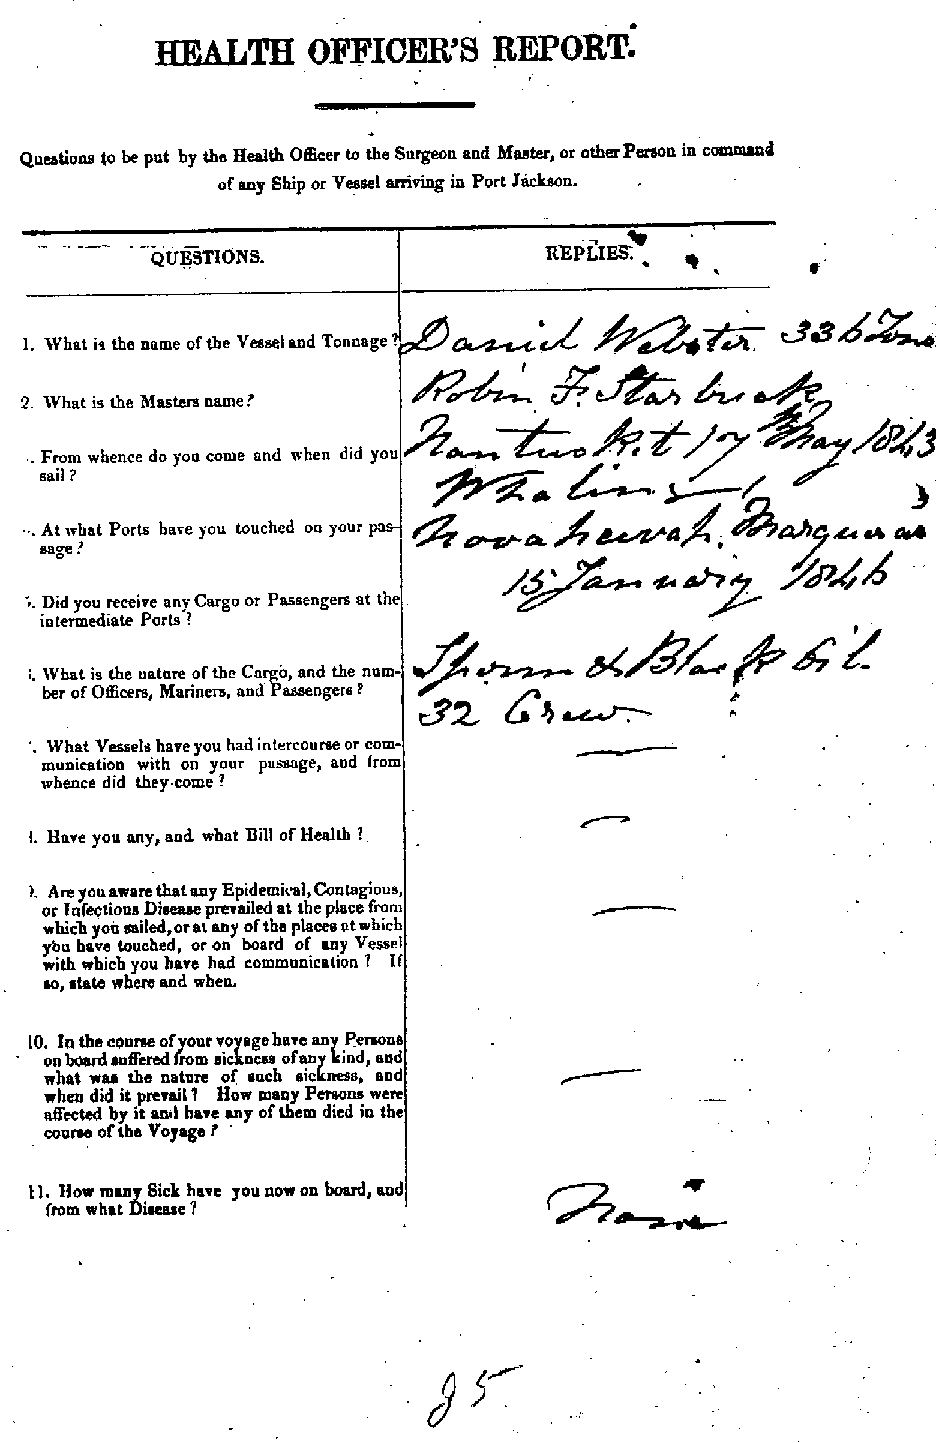 HEALTH OFFICER'S REPORT.
Questions to be put by the Health Officer to the Surgeon and Master, or other Person in command
of any Ship or Vessel arriving in Port Jackson.
QUESTIONS.
REPLIES.
1. What is the name of the Vessel and Tonnage?
Daniel Webster 336 Tons
2. What is the Masters name?
Robin F. Starbuck
From whence do you come and when did you
sail?
Nantucket 17 May 1843
Whaling
At what Ports have you touched on your pas-
sage?
Marquesas
15 January 1846
Did you receive any Cargo or Passengers at the
intermediate Ports?
What is the nature of the Cargo, and the num-
ber of Officers, Mariners, and Passengers?
Sperm & Black Oil
32 Crew.
What Vessels have you had intercourse or com-
munication with on your passage, and from
whence did they come?
Have you any, and what Bill of Health?
Are you aware that any Epidemical, Contagious,
or Infectious Disease prevailed at the place from
which you sailed, or at any of the places at which
you have touched, or on board of any Vessel
with which you have had communication? If
so, state where and when.
10. In the course of your voyage have any Persons
on board suffered from sickness of any kind, and
what was the nature of such sickness, and
when did it prevail? How many Persons were
affected by it and have any of them died in the
course of the Voyage?
11. How many Sick have you now on board, and
from what Disease?
None